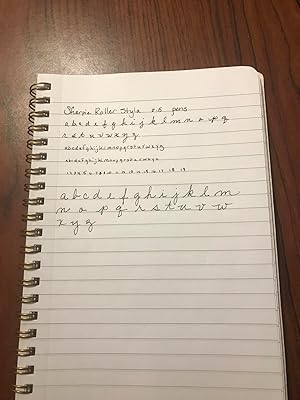 Sharpie Roller Style 0.5 pens
a b c d e f g h i j k l m n o p q
r s t u v w x y z
abcdefghijklmnopqrstuvwxyz
abcdefghijklmnopqrstuvwxyz
a b c d e f g h i j k l m
n o p q r s t u v w
x y z